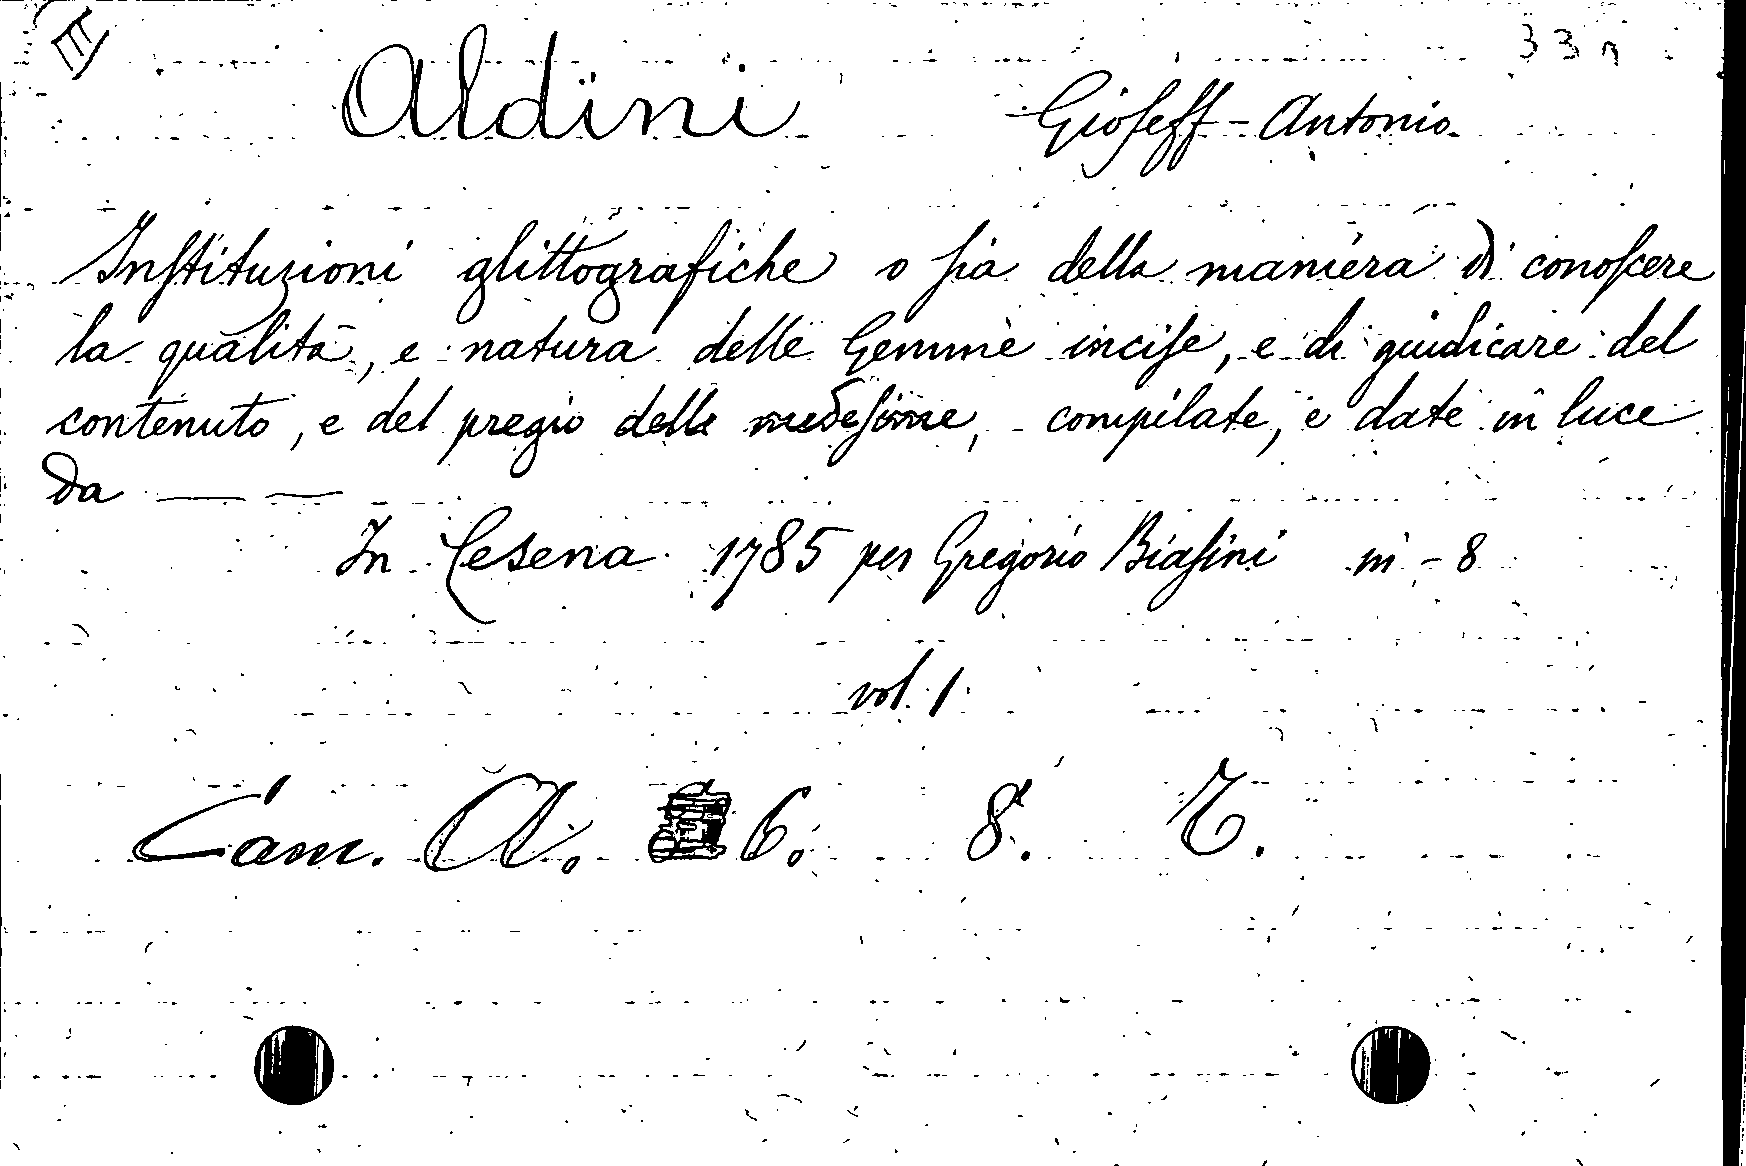 III 33
Aldini Gioseff-Antonio
Instituzioni glittografiche o sia della maniera di conoscere
la qualità, e natura delle Gemme incise, e di giudicare del
contenuto, e del pregio delle medesime, compilate, e date in luce
da — —
In Cesena 1785 per Gregorio Biasini in-8
vol. 1
Cam. A. 6. 8.